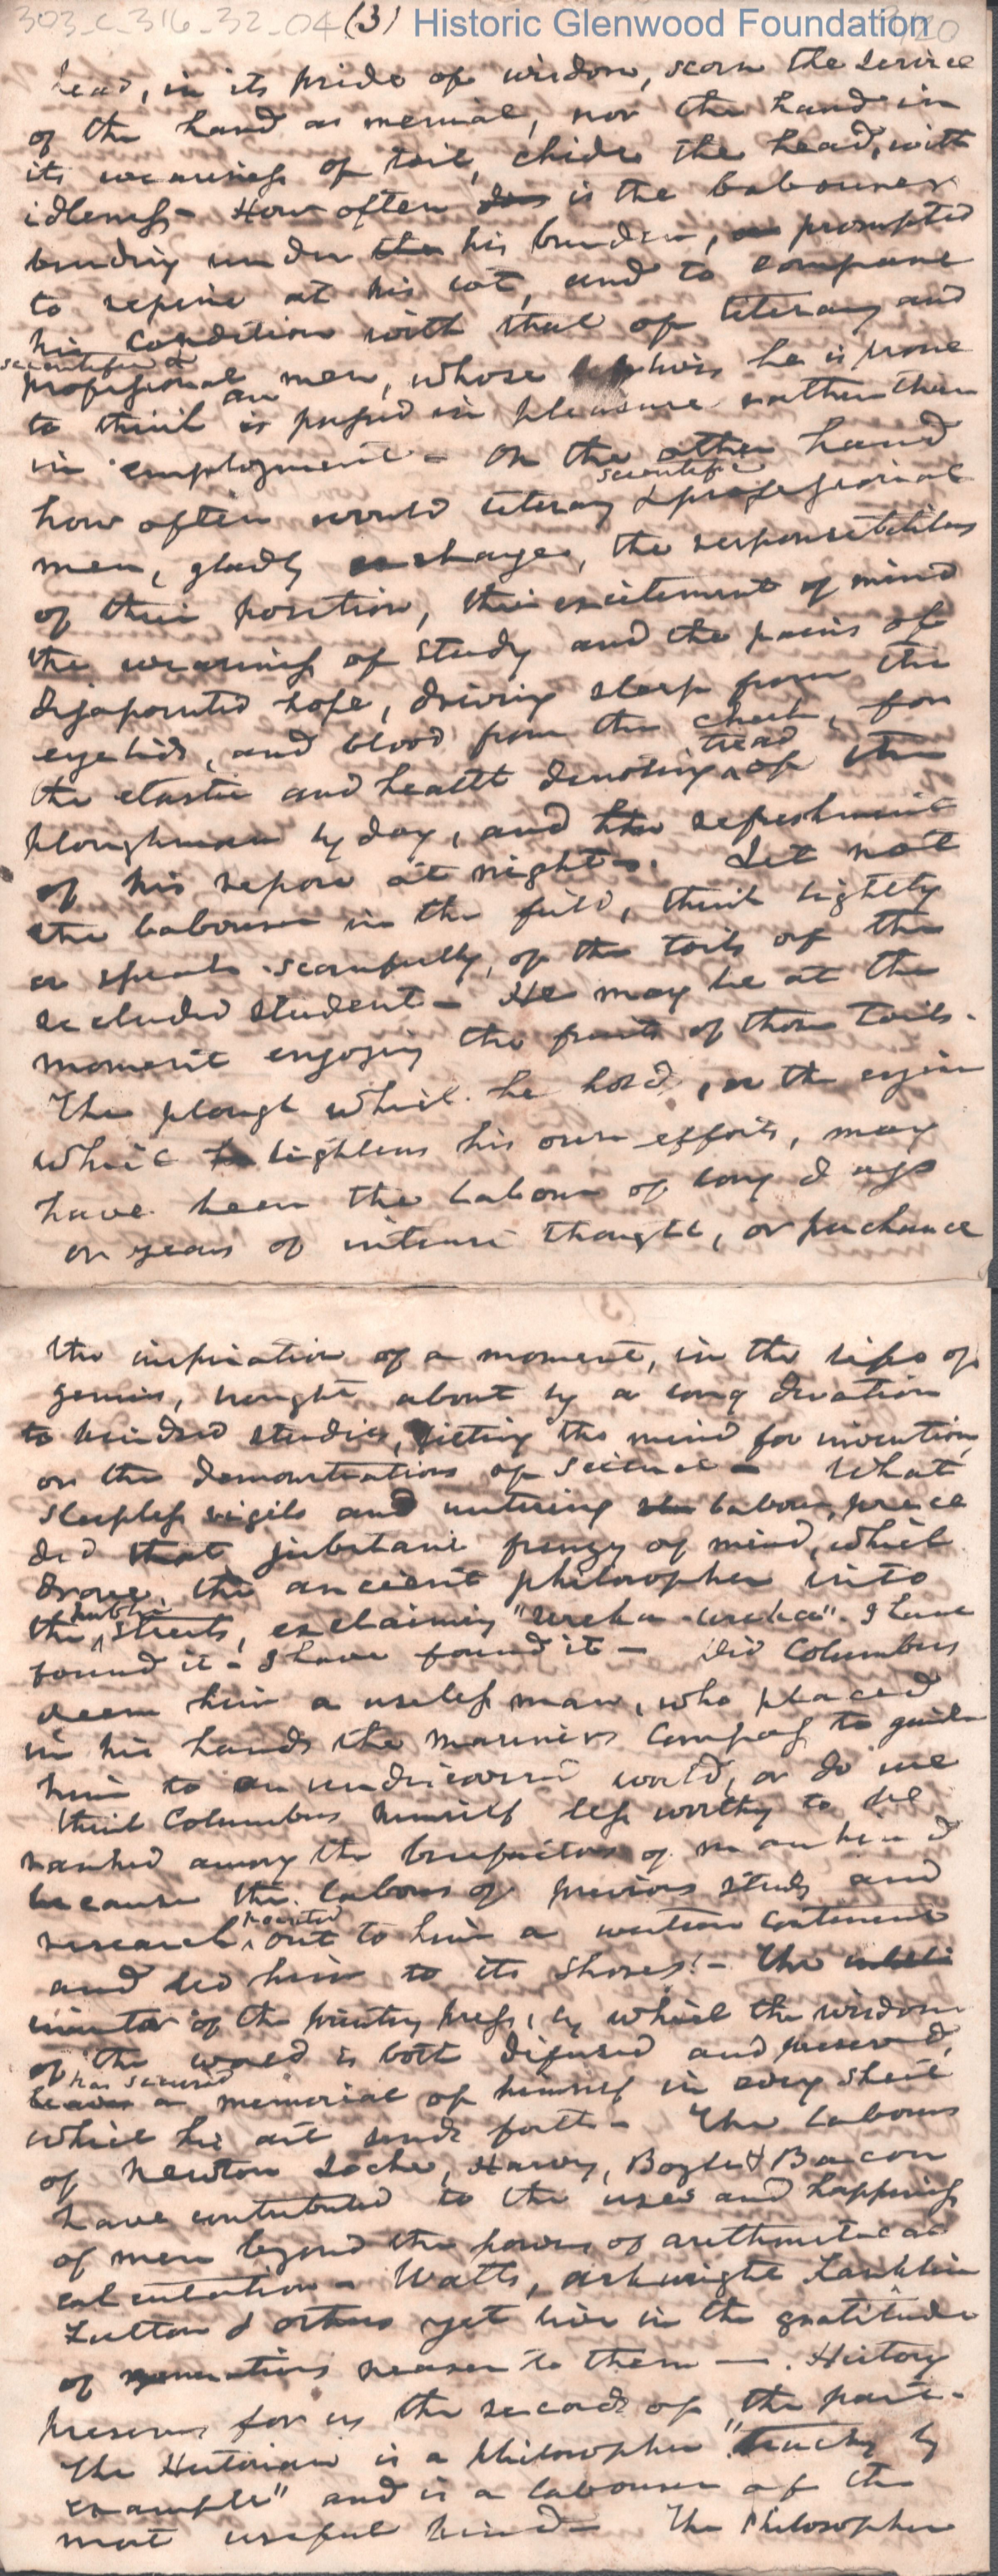 303_C_316_32_04 (3) Historic Glenwood Foundation
head, in its pride of wisdom, scorn the service
of the hand as menial, nor the hand in
its weariness of toil, chide the head, with
idleness - How often does is the labourer
bending under the his burden, prompted
to repine at his lot, and to compare
his condition with that of literary and
scientific &
professional men, whose he is prone
to think is passed in pleasure rather than
in employment - On the other hand
scientific
how often would literary & professional
men, gladly exchange, the responsibilities
of their position, their excitement of mind
the weariness of study and the pains of
disappointed hope, driving sleep from the
eyelids, and blood from the cheek, for
tread
the elastic and health denoting of the
ploughman by day, and the refreshment
of his repose at night -. Let not
the labourer in the field, think lightly
or speak scornfully, of the toils of the
secluded student - He may be at the
moment enjoying the fruits of those toils.
The plough which he holds, or the engine
which lightens his own efforts, may
have been the labour of long days
or years of intense thought, or perchance
the inspiration of a moment, in the life of
genius, brought about by a long devotion
to kindred studies, fitting the mind for invention,
or the demonstrations of science - What
sleepless vigils and untiring labour, precede
did that jubilant frenzy of mind, which
drove the ancient philosopher into
public
the streets, exclaiming "ureka - ureka" - I have
found it - I have found it - Did Columbus
deem him a useless man, who placed
in his hands the mariners compass to guide
him to an undiscovered world, or do we
think Columbus himself less worthy to be
ranked among the benefactors of mankind
because the labours of previous study and
pointed
research, out to him a western continent
and led him to its shores! - The
inventor of the printing press, by which the wisdom
of the world is both difused and preserved,
has secured
leaves a memorial of himself in every sheet
which his art sends forth - The labours
of Newton Locke, Harvey, Boyle & Bacon
have contributed to the uses and happiness
of men beyond the powers of arithmetical
calculation - Watts, Arkwright Franklin
Fulton & others yet live in the gratitude
of generations nearer to them - . History
preserves for us the records of the past -
The Historian is a philosopher "teaching by
example" and is a labourer of the
most useful kind - The Philosopher